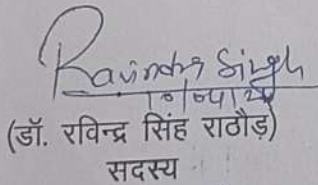 Ravindra Singh
(डॉ. रविन्द्र सिंह राठौड़)
सदस्य